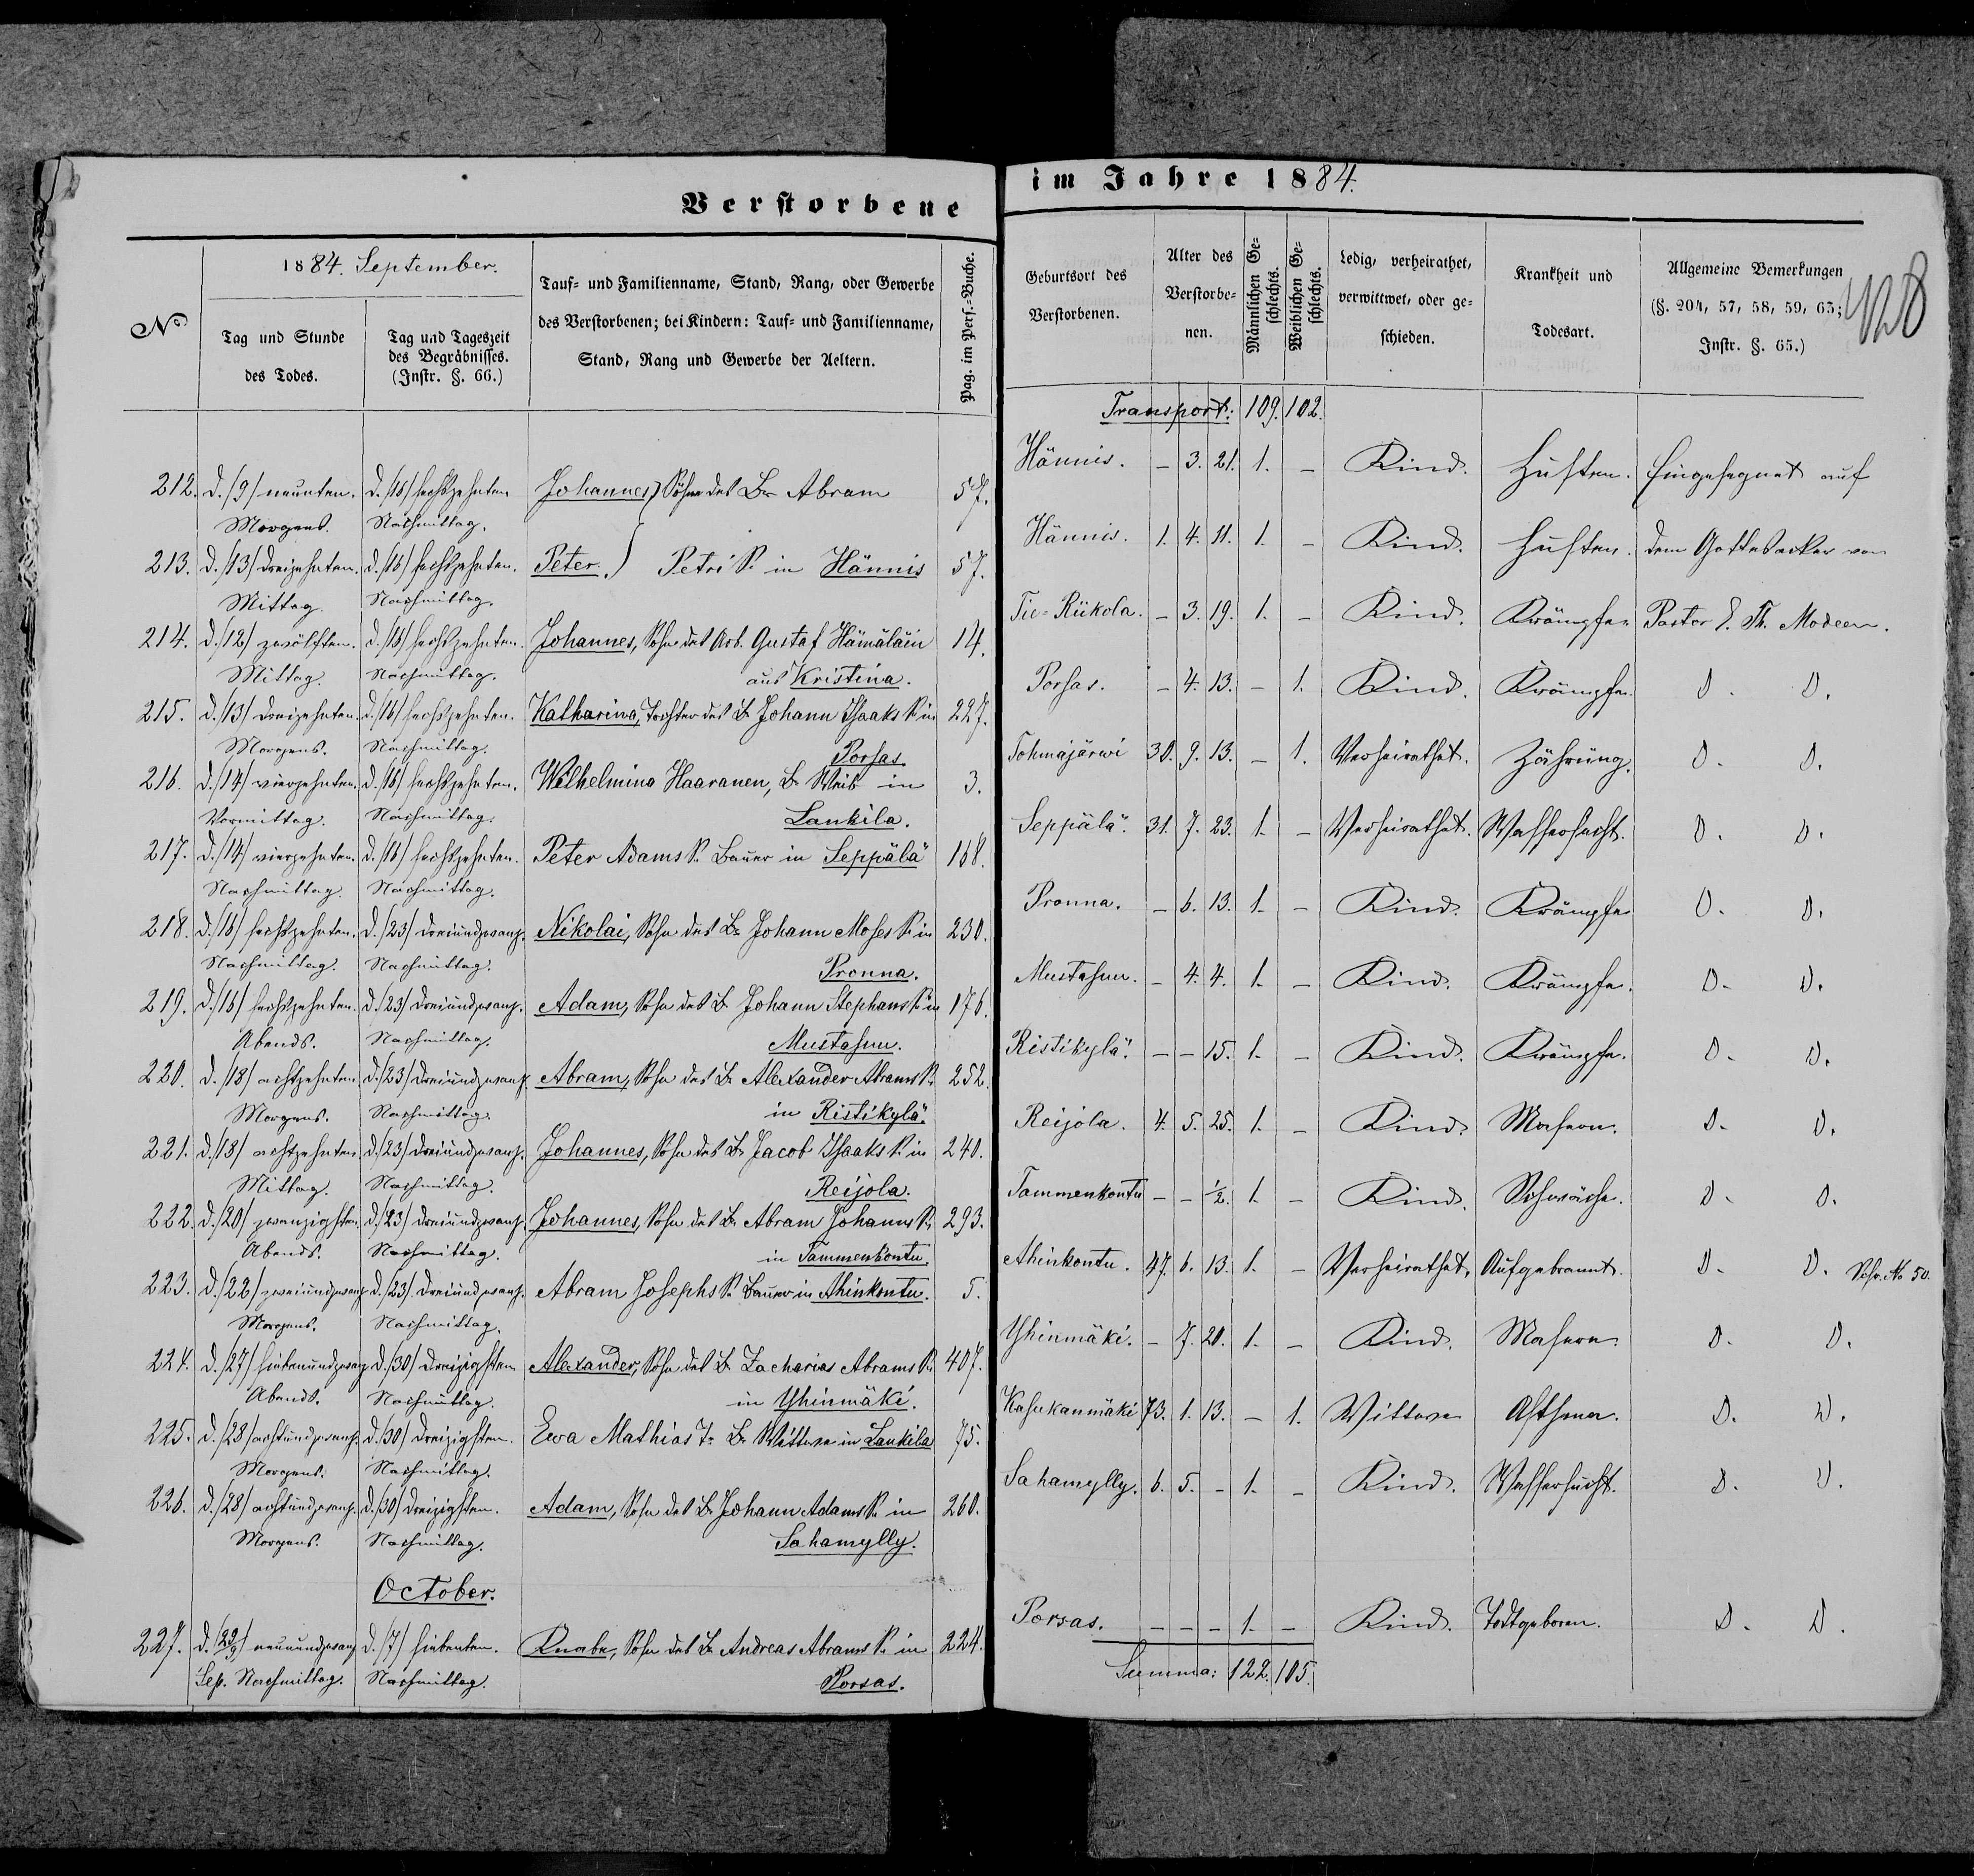 Verstorbene
im Jahre 1884.
1884. September.
No
Tag und Stunde
des Todes.
Tag und Tageszeit
des Begräbnisses.
(Instr. §. 66.)
Tauf- und Familienname, Stand, Rang, oder Gewerbe
des Verstorbenen; bei Kindern: Tauf- und Familienname,
Stand, Rang und Gewerbe der Aeltern.
Pag. im Pers.-Buche.
Geburtsort des
Verstorbenen.
Alter des
Verstorbe-
nen.
Männlichen Ge-
schlechts.
Weiblichen Ge-
schlechts.
Ledig, verheirathet,
verwittwet, oder ge-
schieden.
Krankheit und
Todesart.
Allgemeine Bemerkungen
(§. 204, 57, 58, 59, 63;
Instr. §. 65.)
428
Transport: 109. 102.
212. d. /9/ neunten. d. /16/ sechszehnten Johannes, Söhne des Br Abram 57. Hännis. – 3. 21. 1. – Kind. Husten. Eingesegnet auf
Morgens. Nachmittag.
213. d. /13/ dreizehnten. d. /16/ sechszehnten. Peter. Petri S. in Hännis 57. Hännis. 1. 4. 11. 1. – Kind. Husten. dem Gottesacker von
Mittag. Nachmittag.
214. d. /12/ zwölften. d. /16/ sechszehnten. Johannes, Sohn des Arb. Gustaf Hämäläin 14. Tie-Rükola. – 3. 19. 1. – Kind. Krämpfe. Pastor E. Th. Modeen.
Mittag. Nachmittag. aus Kristina.
215. d. /13/ dreizehnten. d. /16/ sechszehnten. Katharina, Tochter des Br Johann Isaaks S. in 227. Porsas. – 4. 13. – 1. Kind. Krämpfe. D. D.
Morgens. Nachmittag. Porsas.
216. d. /14/ vierzehnten. d. /16/ sechszehnten. Wilhelmina Haaranen, Br Weib in 3. Tohmajärwi 30. 9. 13. – 1. Verheirathet. Zährung. D. D.
Vormittag. Nachmittag. Lankila.
217. d. /14/ vierzehnten. d. /16/ sechszehnten. Peter Adams S. Bauer in Seppälä 168. Seppälä. 31. 7. 23. 1. – Verheirathet. Wassersucht. D. D.
Nachmittag. Nachmittag.
218. d. /16/ sechszehnten. d. /23/ dreiundzwanz. Nikolai, Sohn des Br Johann Moses S. in 230. Pronna. – 6. 13. 1. – Kind. Krämpfe. D. D.
Nachmittag. Nachmittag. Pronna.
219. d. /16/ sechszehnten. d. /23/ dreiundzwanz. Adam, Sohn des Br Johann Stephans S. in 176. Mustasuu. – 4. 4. 1. – Kind. Krämpfe. D. D.
Abends. Nachmittag. Mustasuu.
220. d. /18/ achtzehnten d. /23/ dreiundzwanz. Abram, Sohn des Br Alexander Abrams S. 252. Ristikylä. – – 15. 1. – Kind. Krämpfe. D. D.
Morgens. Nachmittag. in Ristikylä.
221. d. /18/ achtzehnten d. /23/ dreiundzwanz. Johannes, Sohn des Br Jacob Isaaks S. in 240. Reijola. 4. 5. 25. 1. – Kind. Masern. D. D.
Mittag. Nachmittag. Reijola.
222. d. /20/ zwanzigsten. d. /23/ dreiundzwanz. Johannes, Sohn des Br Abram Johanns S. 293. Tammenkontu – – ½. 1. – Kind. Schwäche. D. D.
Abends. Nachmittag. in Tammenkontu.
223. d. /22/ zweiundzwanz d. /23/ dreiundzwanz. Abram Josephs S. Bauer in Ahinkontu. 5. Ahinkontu. 47. 6. 13. 1. – Verheirathet. Aufgebrannt. D. D. Schr. No 50.
Morgens. Nachmittag.
224. d. /27/ siebenundzwanz d. /30/ dreizigsten Alexander, Sohn des Br Zacharias Abrams S. 407. Yhinmäki. – 7. 20. 1. – Kind. Masern. D. D.
Abends. Nachmittag. in Yhinmäki.
225. d. /28/ achtundzwanz. d. /30/ dreizigsten. Ewa Mathias T. Br Wittwe in Lankila 75. Kasukanmäki 73. 1. 13. – 1. Wittwe Asthma. D. D.
Morgens. Nachmittag.
226. d. /28/ achtundzwanz. d. /30/ dreizigsten. Adam, Sohn des Br Johann Adams S. in 260. Sahamylly. 6. 5. – 1. – Kind. Wassersucht. D. D.
Morgens. Nachmittag. Sahamylly.
October.
227. d. /29/9/ neunundzwanz d. /7/ siebenten. Knabe, Sohn des Br Andreas Abrams S. in 224. Porsas. – – – 1. – Kind. Todtgeboren. D. D.
Sep. Nachmittag. Nachmittag. Porsas.
Summa: 122. 105.